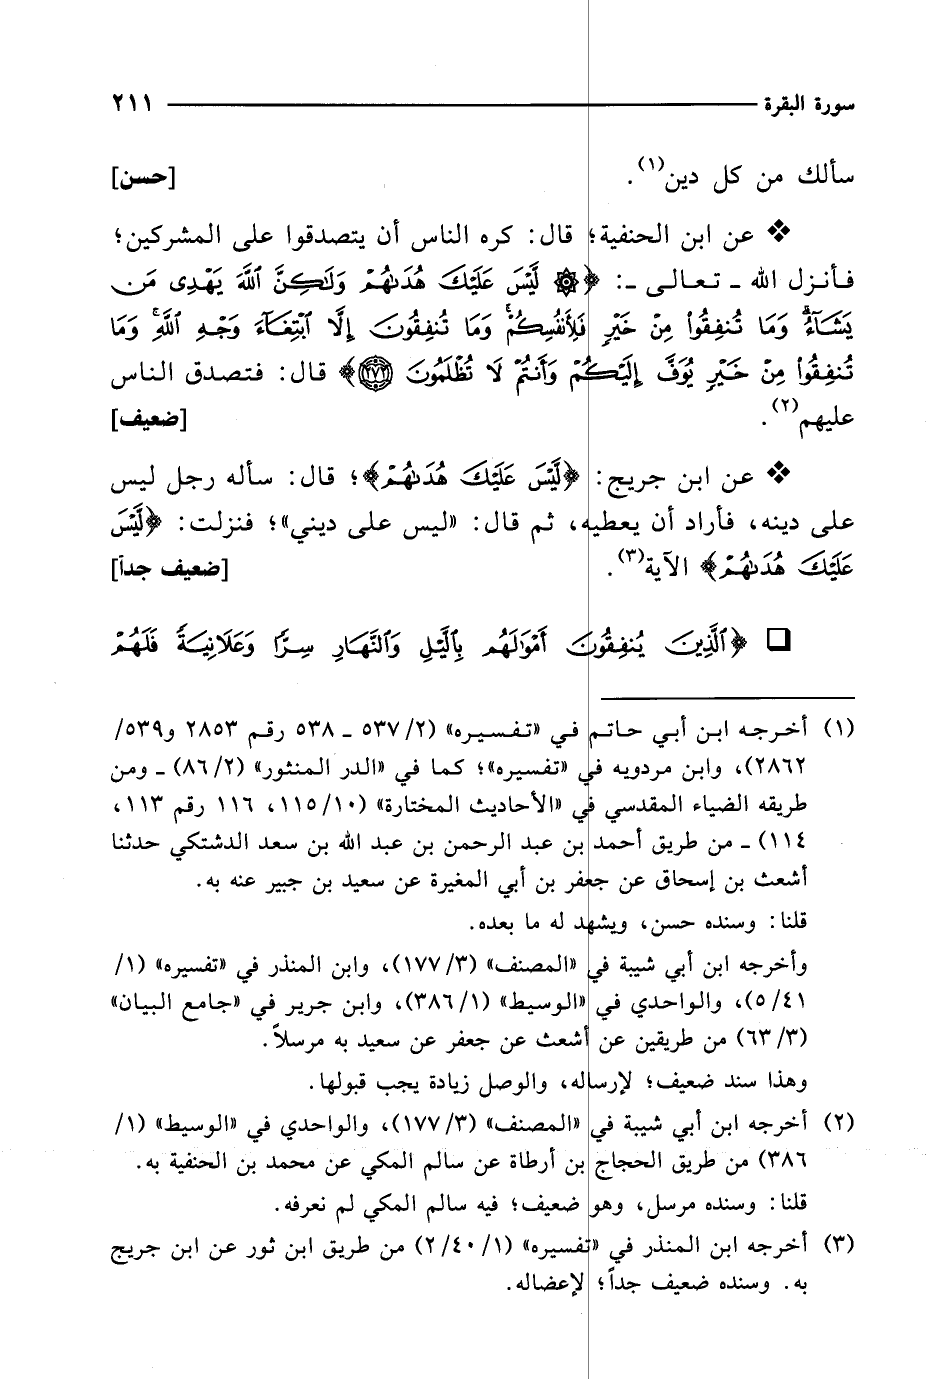 سورة البقرة ٢١١
سألك من كل دين(١). [حسن]
❖ عن ابن الحنفية؛ قال: كره الناس أن يتصدقوا على المشركين؛
فأنزل الله ـ تعالى ـ: ﴿۞ لَّيْسَ عَلَيْكَ هُدَىٰهُمْ وَلَٰكِنَّ ٱللَّهَ يَهْدِى مَن
يَشَآءُ ۗ وَمَا تُنفِقُوا۟ مِنْ خَيْرٍ فَلِأَنفُسِكُمْ ۚ وَمَا تُنفِقُونَ إِلَّا ٱبْتِغَآءَ وَجْهِ ٱللَّهِ ۚ وَمَا
تُنفِقُوا۟ مِنْ خَيْرٍ يُوَفَّ إِلَيْكُمْ وَأَنتُمْ لَا تُظْلَمُونَ ﴿٢٧٢﴾﴾ قال: فتصدق الناس
عليهم(٢). [ضعيف]
❖ عن ابن جريج: ﴿لَّيْسَ عَلَيْكَ هُدَىٰهُمْ﴾؛ قال: سأله رجل ليس
على دينه، فأراد أن يعطيه، ثم قال: «ليس على ديني»؛ فنزلت: ﴿لَّيْسَ
عَلَيْكَ هُدَىٰهُمْ﴾ الآية(٣). [ضعيف جداً]
❑ ﴿ٱلَّذِينَ يُنفِقُونَ أَمْوَٰلَهُم بِٱلَّيْلِ وَٱلنَّهَارِ سِرًّا وَعَلَانِيَةً فَلَهُمْ
(١) أخرجه ابن أبي حاتم في «تفسيره» (٢/ ٥٣٧ ـ ٥٣٨ رقم ٢٨٥٣ و٥٣٩/
٢٨٦٢)، وابن مردويه في «تفسيره»؛ كما في «الدر المنثور» (٢/ ٨٦) ـ ومن
طريقه الضياء المقدسي في «الأحاديث المختارة» (١٠/ ١١٥، ١١٦ رقم ١١٣،
١١٤) ـ من طريق أحمد بن عبد الرحمن بن عبد الله بن سعد الدشتكي حدثنا
أشعث بن إسحاق عن جعفر بن أبي المغيرة عن سعيد بن جبير عنه به.
قلنا: وسنده حسن، ويشهد له ما بعده.
وأخرجه ابن أبي شيبة في «المصنف» (٣/ ١٧٧)، وابن المنذر في «تفسيره» (١/
٤١/ ٥)، والواحدي في «الوسيط» (١/ ٣٨٦)، وابن جرير في «جامع البيان»
(٣/ ٦٣) من طريقين عن أشعث عن جعفر عن سعيد به مرسلاً.
وهذا سند ضعيف؛ لإرساله، والوصل زيادة يجب قبولها.
(٢) أخرجه ابن أبي شيبة في «المصنف» (٣/ ١٧٧)، والواحدي في «الوسيط» (١/
٣٨٦) من طريق الحجاج بن أرطاة عن سالم المكي عن محمد بن الحنفية به.
قلنا: وسنده مرسل، وهو ضعيف؛ فيه سالم المكي لم نعرفه.
(٣) أخرجه ابن المنذر في «تفسيره» (١/ ٤٠/ ٢) من طريق ابن ثور عن ابن جريج
به. وسنده ضعيف جداً؛ لإعضاله.